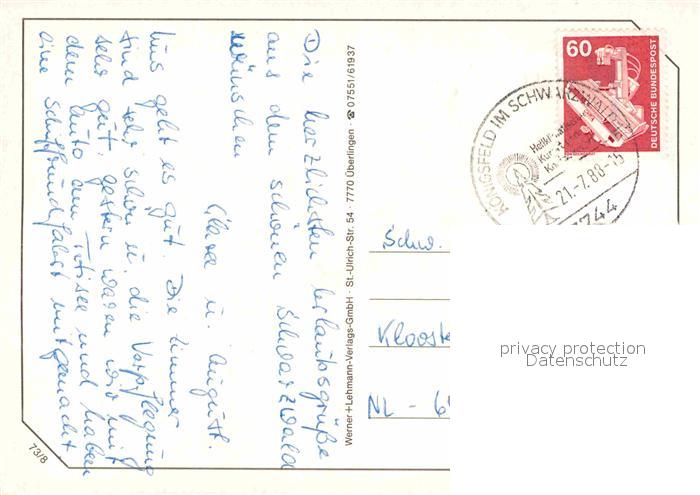 Die herzlichsten Urlaubsgrüße
aus dem schönen Schwarzwald
wünschen
u. August.
Uns geht es gut. Die Zimmer
sind sehr schön u. die Verpflegung
sehr gut. Gestern waren wir mit
dem Auto am Titisee und haben
eine Schiffrundfahrt mitgemacht
73/8
Werner+Lehmann-Verlags-GmbH · St.-Ulrich-Str. 54 · 7770 Überlingen · ☎ 07551/61937
60
DEUTSCHE BUNDESPOST
KÖNIGSFELD IM SCHWARZWALD
21.-7.88-15
7744
Schw.
Klooste
NL - 64
privacy protection
Datenschutz